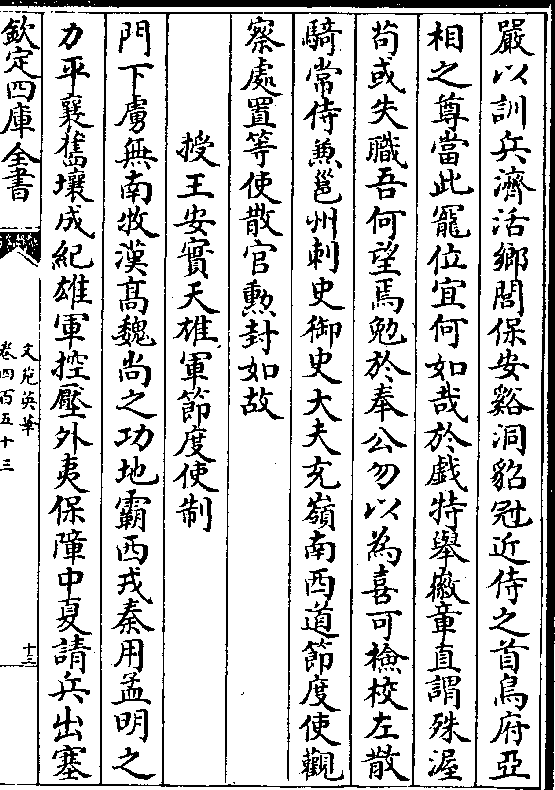 嚴以訓兵濟活鄉閭保安谿洞貂冠近侍之首烏府亞
相之尊當此寵位宜何如哉於戲特舉徽章直謂殊渥
苟或失職吾何望焉勉於奉公勿以為喜可檢校左散
騎常侍兼邕州刺史御史大夫充嶺南西道節度使觀
察處置等使散官勲封如故
授王安實天雄軍節度使制
門下虜無南牧漢髙魏尚之功地霸西戎秦用孟明之
力平襄舊壤成紀雄軍控壓外夷保障中夏請兵出塞
欽定四庫全書
文苑英華
卷四百五十三
十三